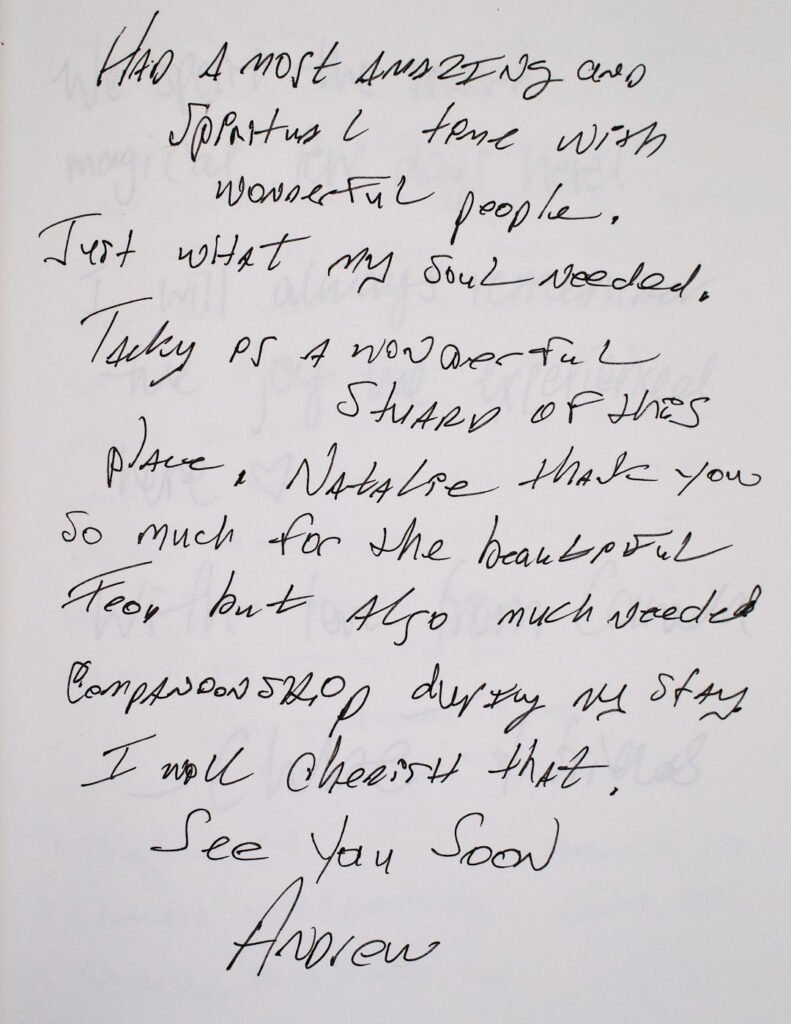 HAD A MOST AMAZING and
Spiritual time with
wonderful people.
Just what my soul needed.
Tacky is a wonderful
STUARD OF this
place. Natalie thank you
so much for the beautiful
but also much needed
companionship during my stay
I will cherish that.
See you soon
Andrew